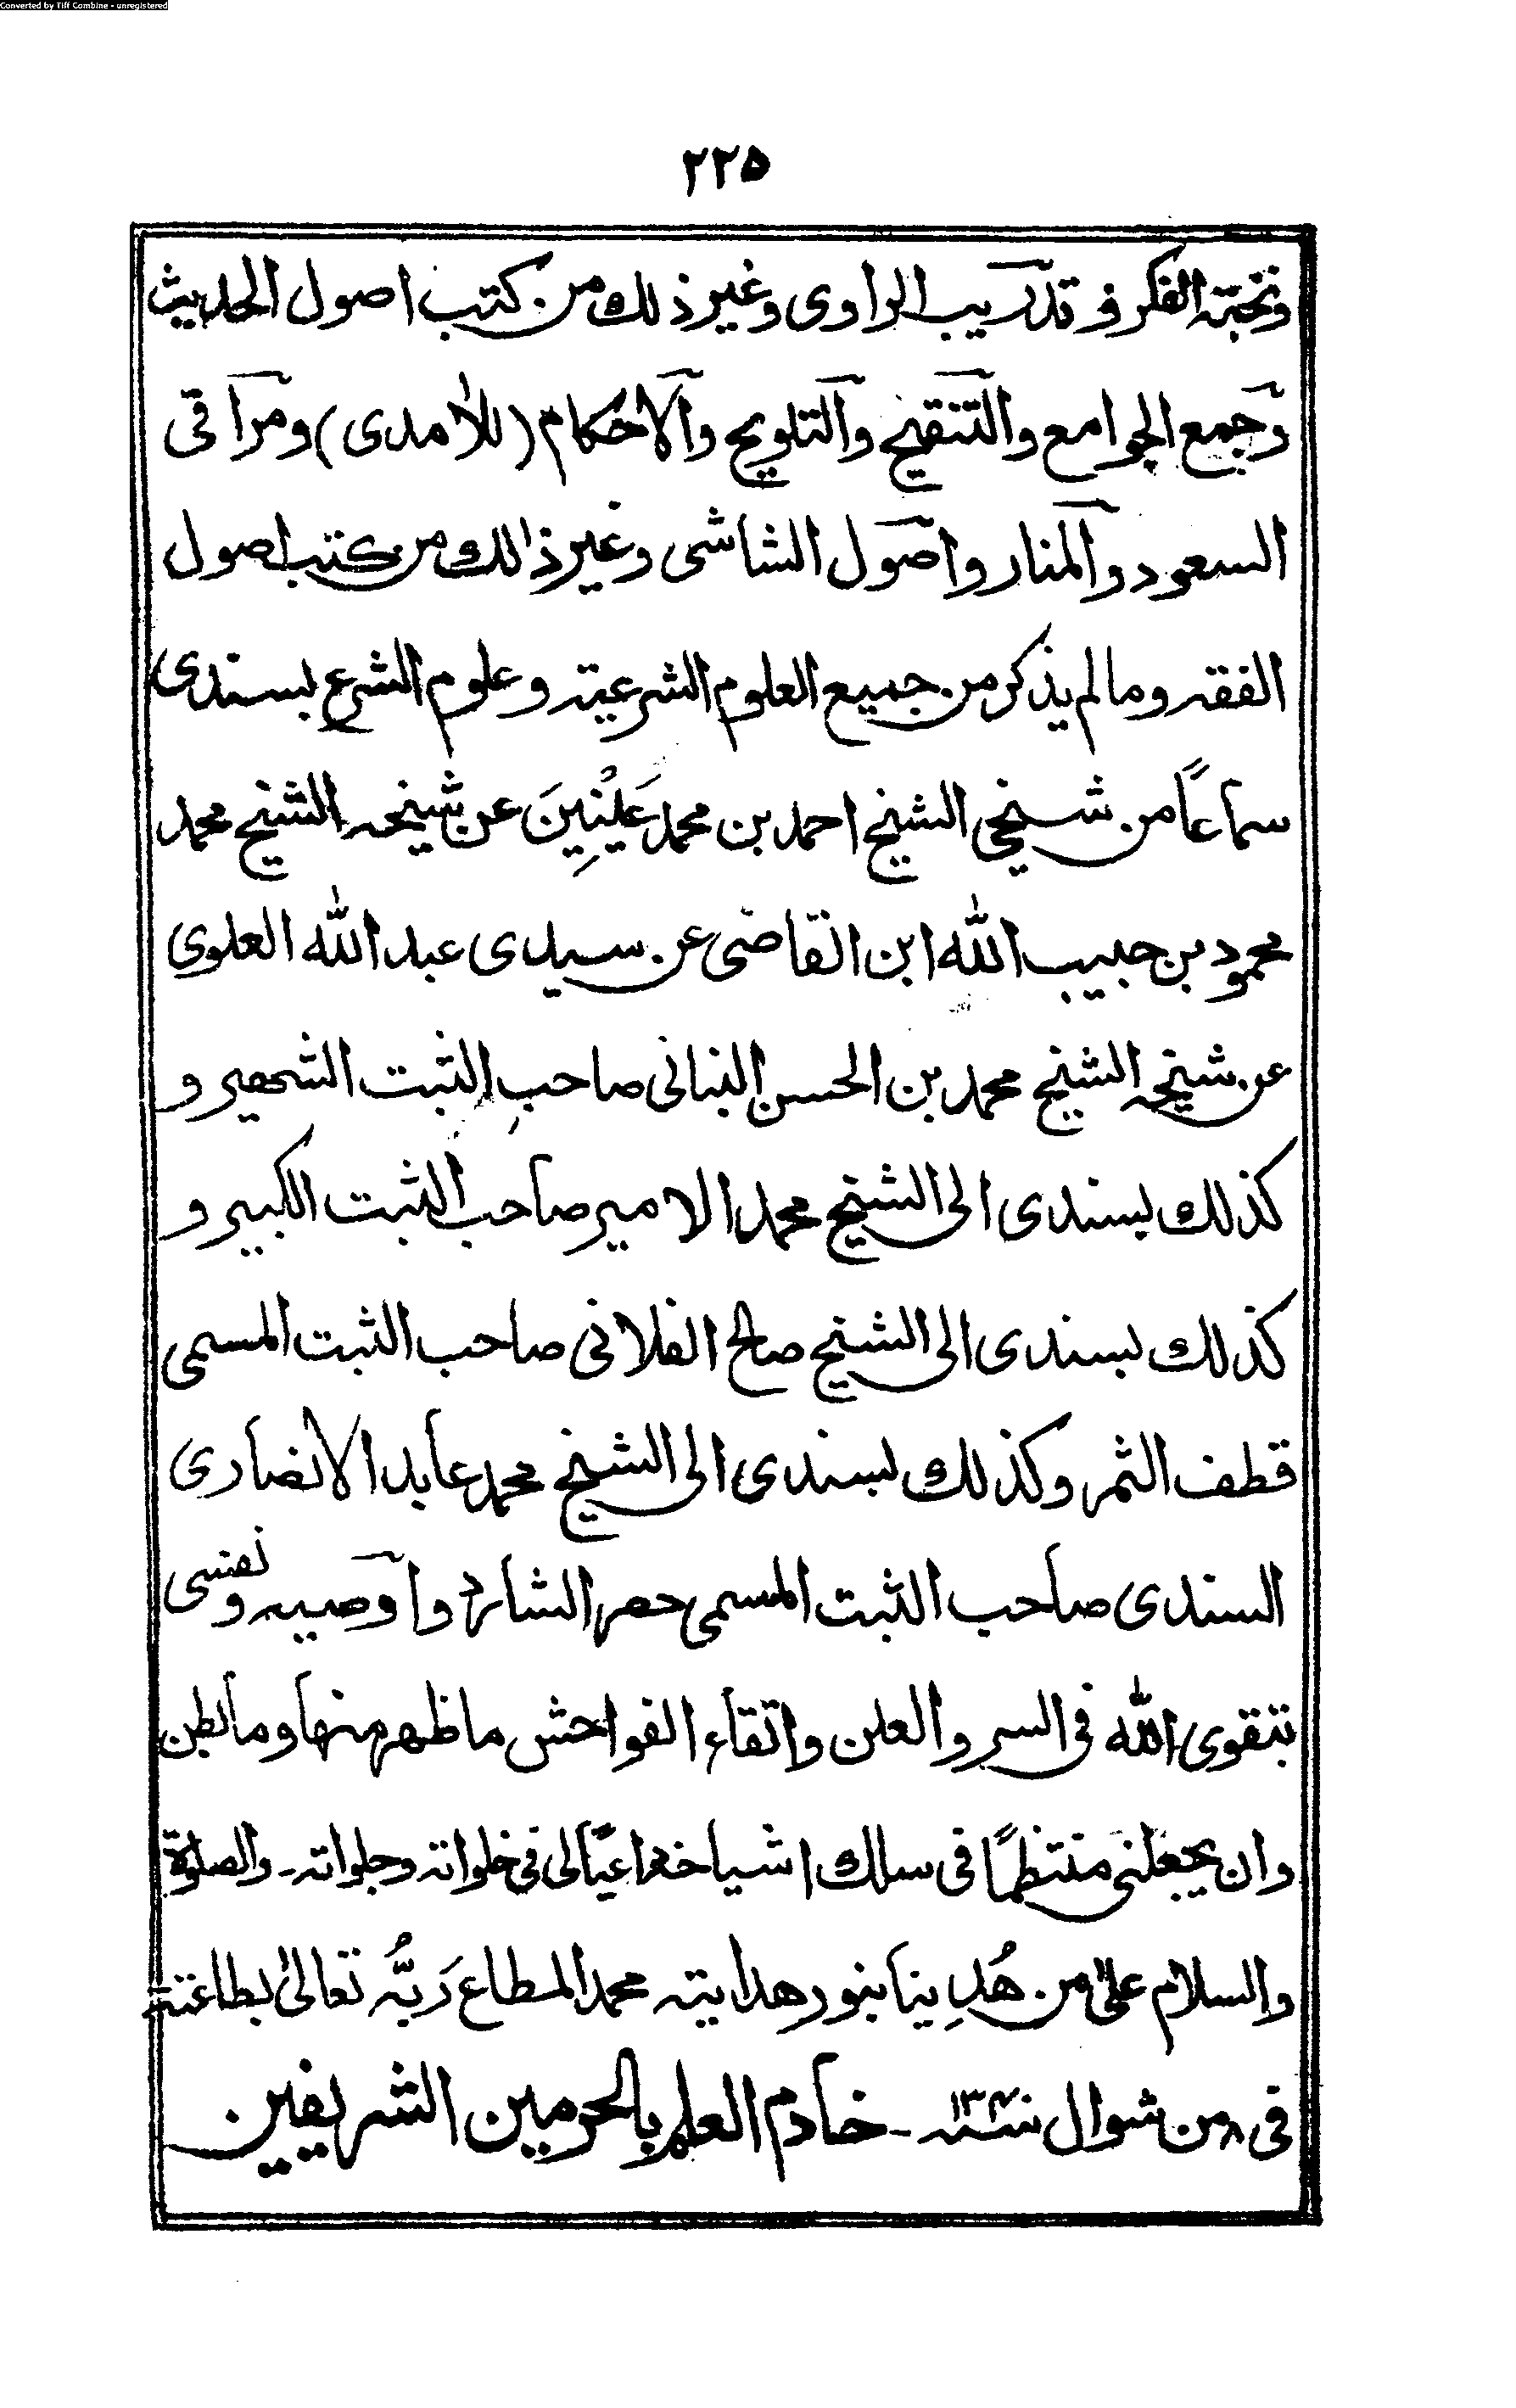 Converted by Tiff Combine - unregistered
۲۲۵
ونخبۃ الفکر و تدریب الراوی وغیر ذلك من کتب اصول الحدیث
وجمع الجوامع والتنقیح والتلویح والاحکام (للاٰمدی) ومراقی
السعود والمنار واصول الشاشی وغیر ذالك من کتب اصول
الفقہ وما لم یذکر من جمیع العلوم الشرعیۃ وعلوم الشرع بسندی
سماعًا من شیخی الشیخ احمد بن محمد عَیْنِینَ عن شیخہ الشیخ محمد
محمود بن حبیب اللہ ابن القاضی عن سیدی عبد اللہ العلوی
عن شیخہ الشیخ محمد بن الحسن البنانی صاحبِ الثبت الشھیر و
کذلك بسندی الی الشیخ محمد الامیر صاحب الثبت الکبیر و
کذلك بسندی الی الشیخ صالح الفلانی صاحب الثبت المسمی
قطف الثمر وکذلك بسندی الی الشیخ محمد عابد الانصاری
السندی صاحب الثبت المسمی حصر الشارد واوصیہ ونفسی
بتقوی اللہ فی السر والعلن واتقاء الفواحش ماظهر منها وما بطن
وان یجعلنی منتظمًا فی سلك اشیاخہ داعیًا لی فی خلواتہ وجلواتہ۔ والصلوٰۃ
والسلام علیٰ من ھُدِینا بنور هدایتہ محمد المطاع رَبُّہ تعالیٰ بطاعتہ
فی ۸ من شوال سنۃ ۔ خادم العلم بالحرمین الشریفین